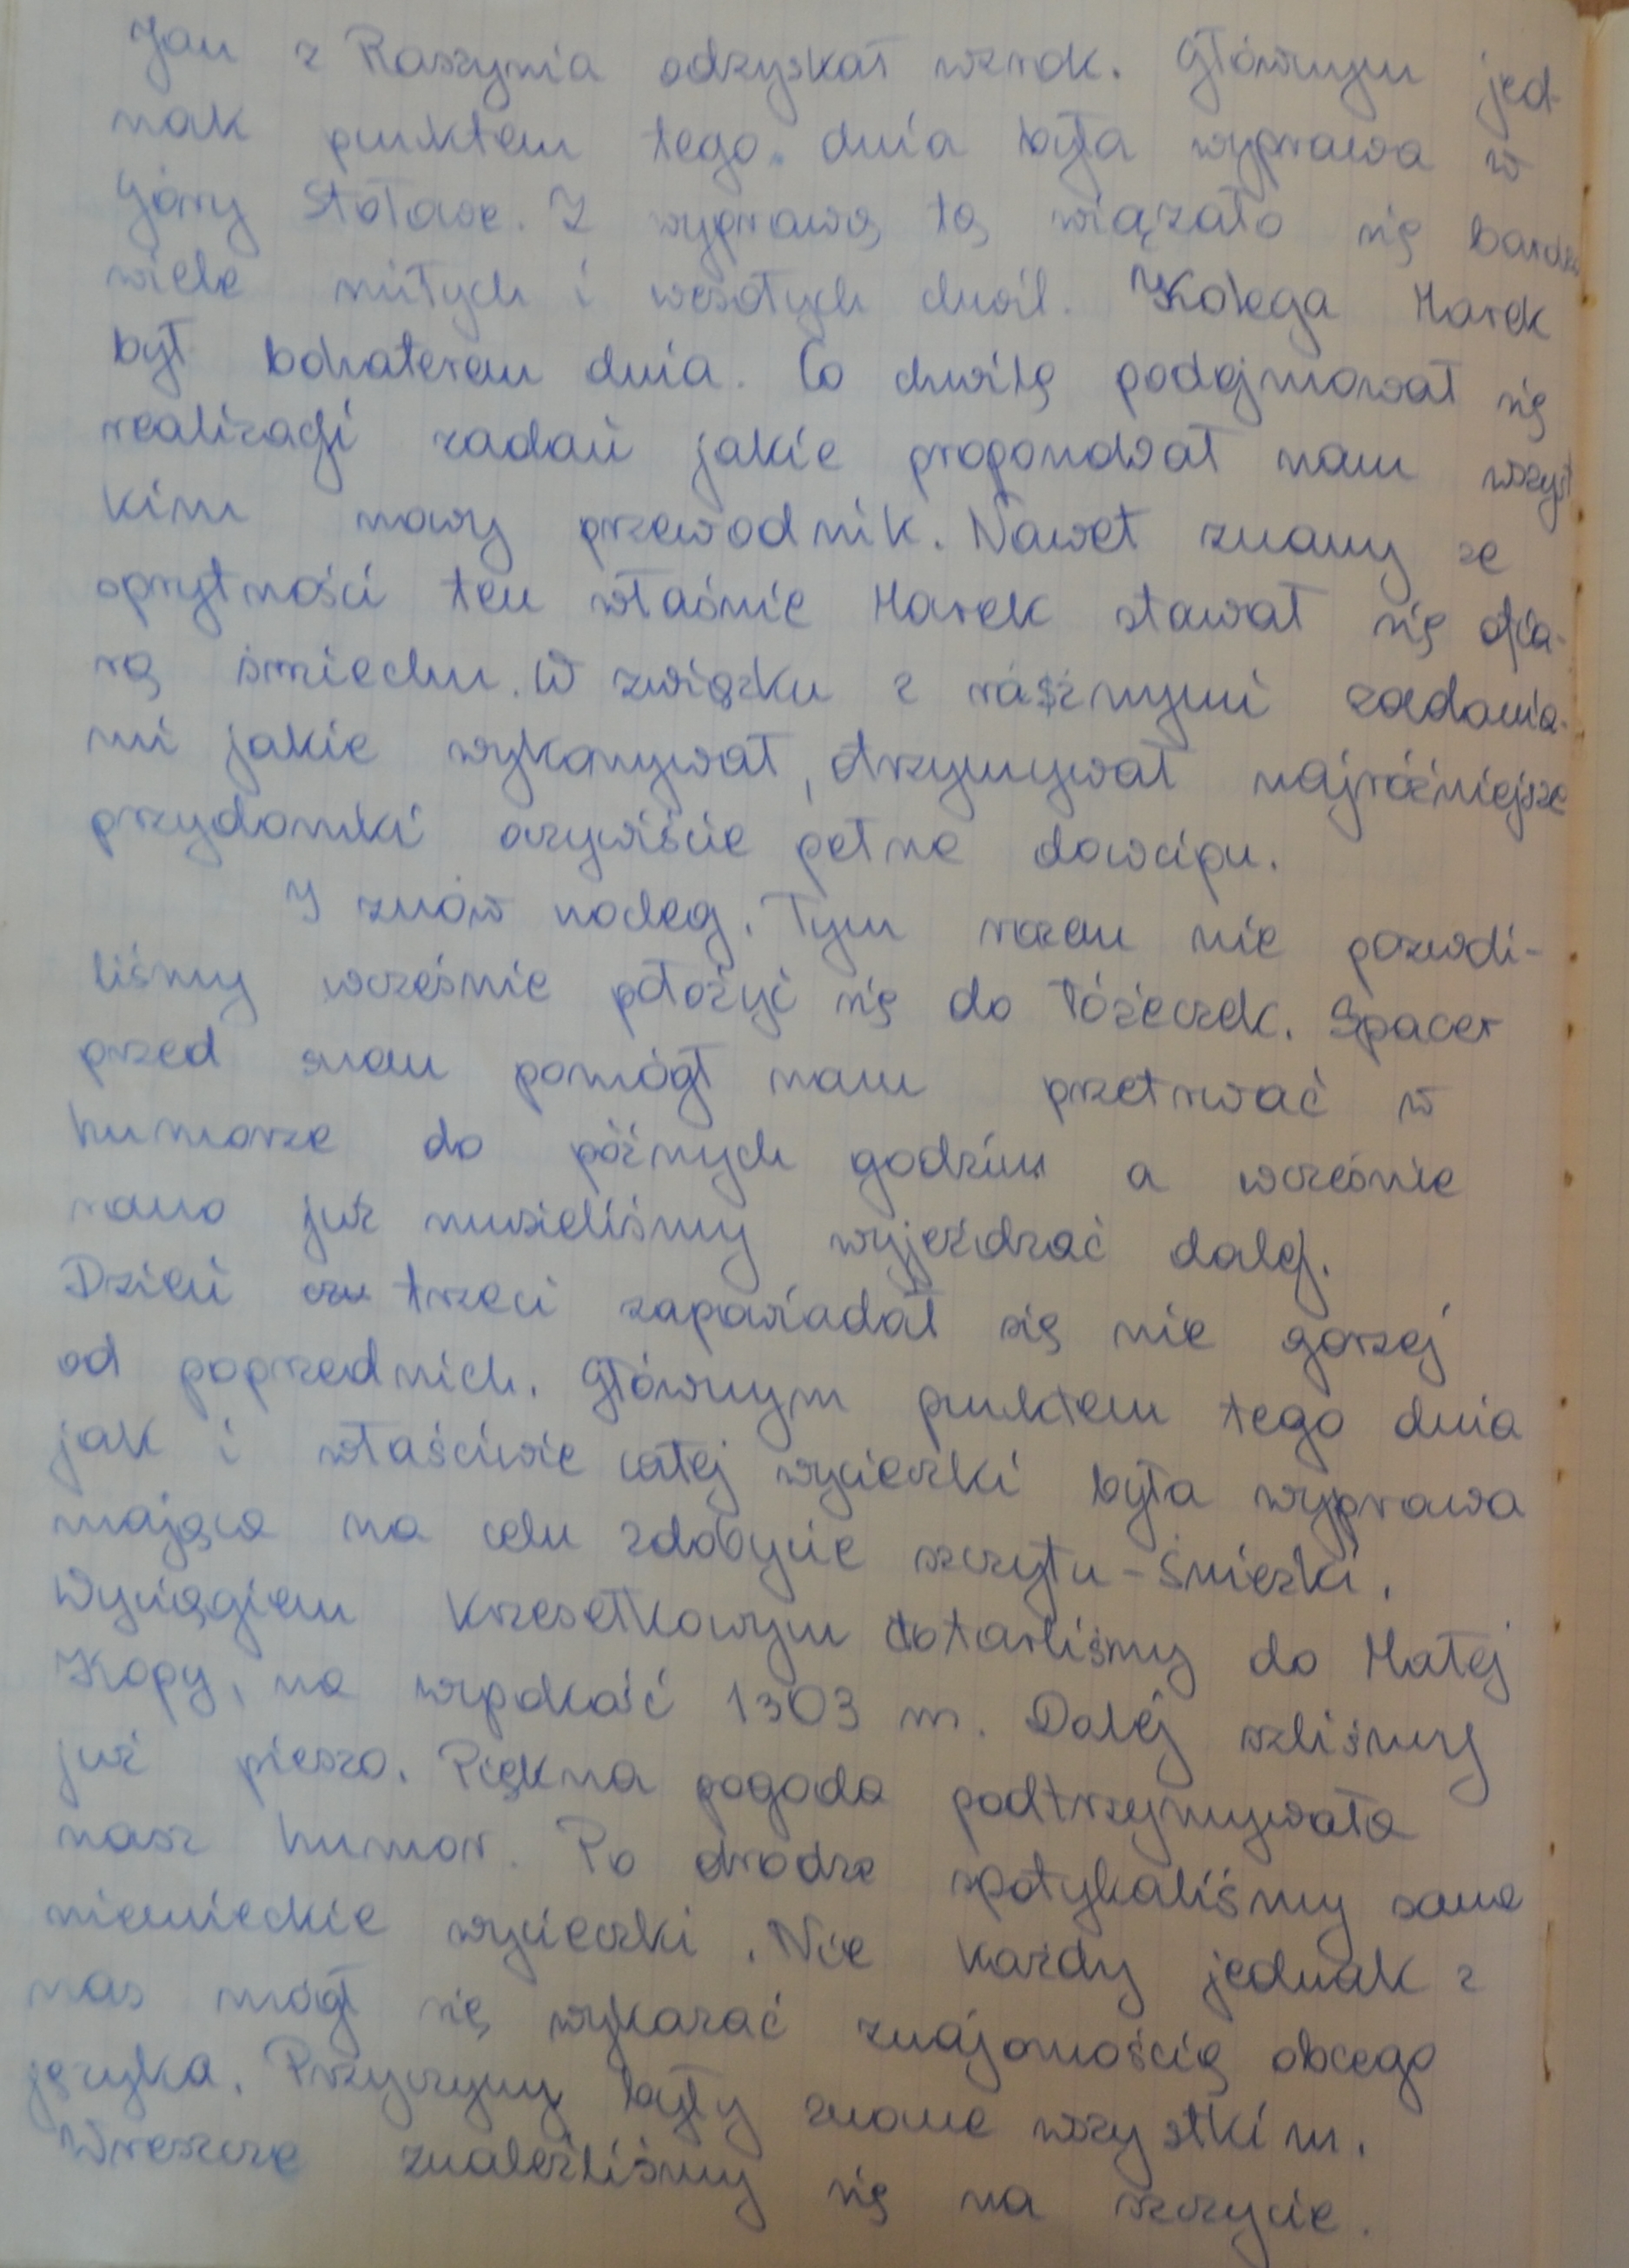 Jan z Raszynia odzyskał wzrok. Głównym jed-
nak punktem tego dnia była wyprawa w
Góry Stołowe. Z wyprawą tą wiązało się bardzo
wiele miłych i wesołych chwil. Kolega Marek
był bohaterem dnia. Co chwilę podejmował się
realizacji zadań jakie proponował nam wszyst
kim nowy przewodnik. Nawet znany ze
sprytności ten właśnie Marek stawał się ofia-
rą śmiechu. W związku z różnymi zadania-
mi jakie wykonywał, otrzymywał najróżniejsze
przydomki oczywiście pełne dowcipu.
I znów nocleg. Tym razem nie pozwoli-
liśmy wcześnie położyć się do łóżeczek. Spacer
przed snem pomógł nam przetrwać w
humorze do późnych godzin a wcześnie
rano już musieliśmy wyjeżdzać dalej.
Dzień trzeci zapowiadał się nie gorzej
od poprzednich. Głównym punktem tego dnia
jak i właściwie całej wycieczki była wyprawa
mająca na celu zdobycie szczytu - Śnieżki.
Wyciągiem krzesełkowym dotarliśmy do Małej
Kopy, na wysokość 1303 m. Dalej szliśmy
już pieszo. Piękna pogoda podtrzymywała
nasz humor. Po drodze spotykaliśmy same
niemieckie wycieczki. Nie każdy jednak z
nas mógł się wykazać znajomością obcego
języka. Przyczyny były znane wszystkim.
Wreszcze znaleźliśmy się na szczycie.